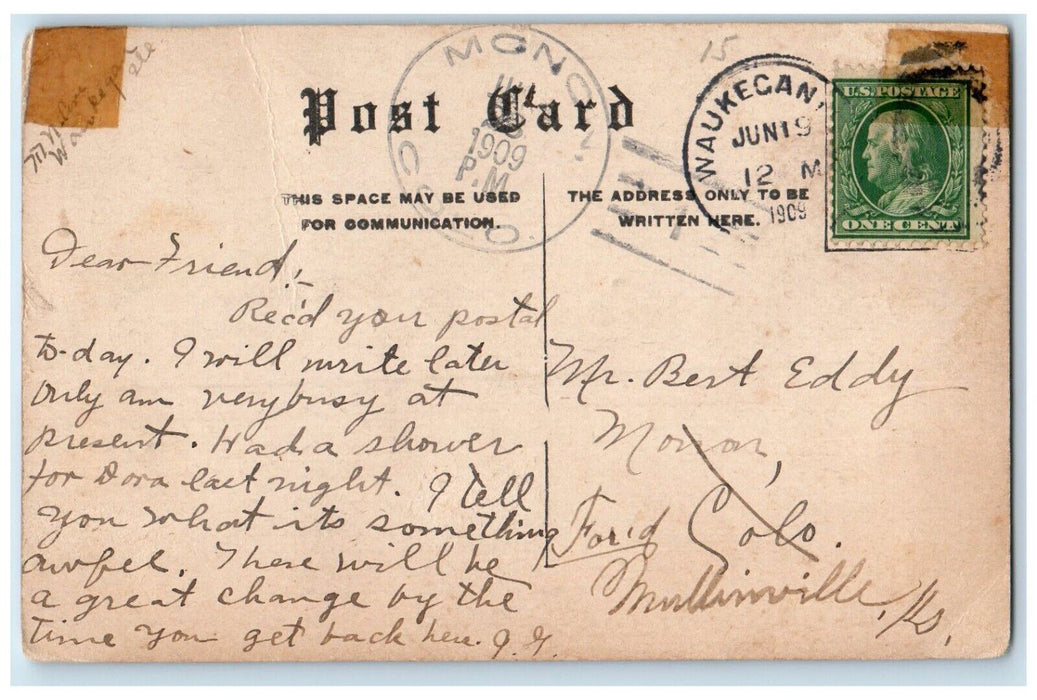 Post Card
THIS SPACE MAY BE USED
FOR COMMUNICATION.
THE ADDRESS ONLY TO BE
WRITTEN HERE.
15
WAUKEGAN,
JUN 19
12 M
1909
U.S. POSTAGE
ONE CENT
MONON
1909
P.M.
COLO
Dear Friend,—
Rec'd your postal
to-day. I will write later
only am very busy at
present. Had a shower
for Dora last night. I tell
you what its something
awful. There will be
a great change by the
time you get back here. J. J.
Mr. Bert Eddy
Monon,
Colo.
For'd
Mullinville, Ks.